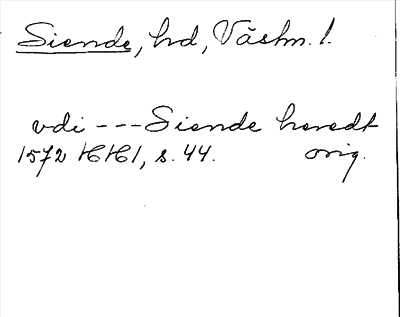 Siende, hd, Västm. l.
vdi --- Siende heredt
1572 HH1, s. 44. orig.